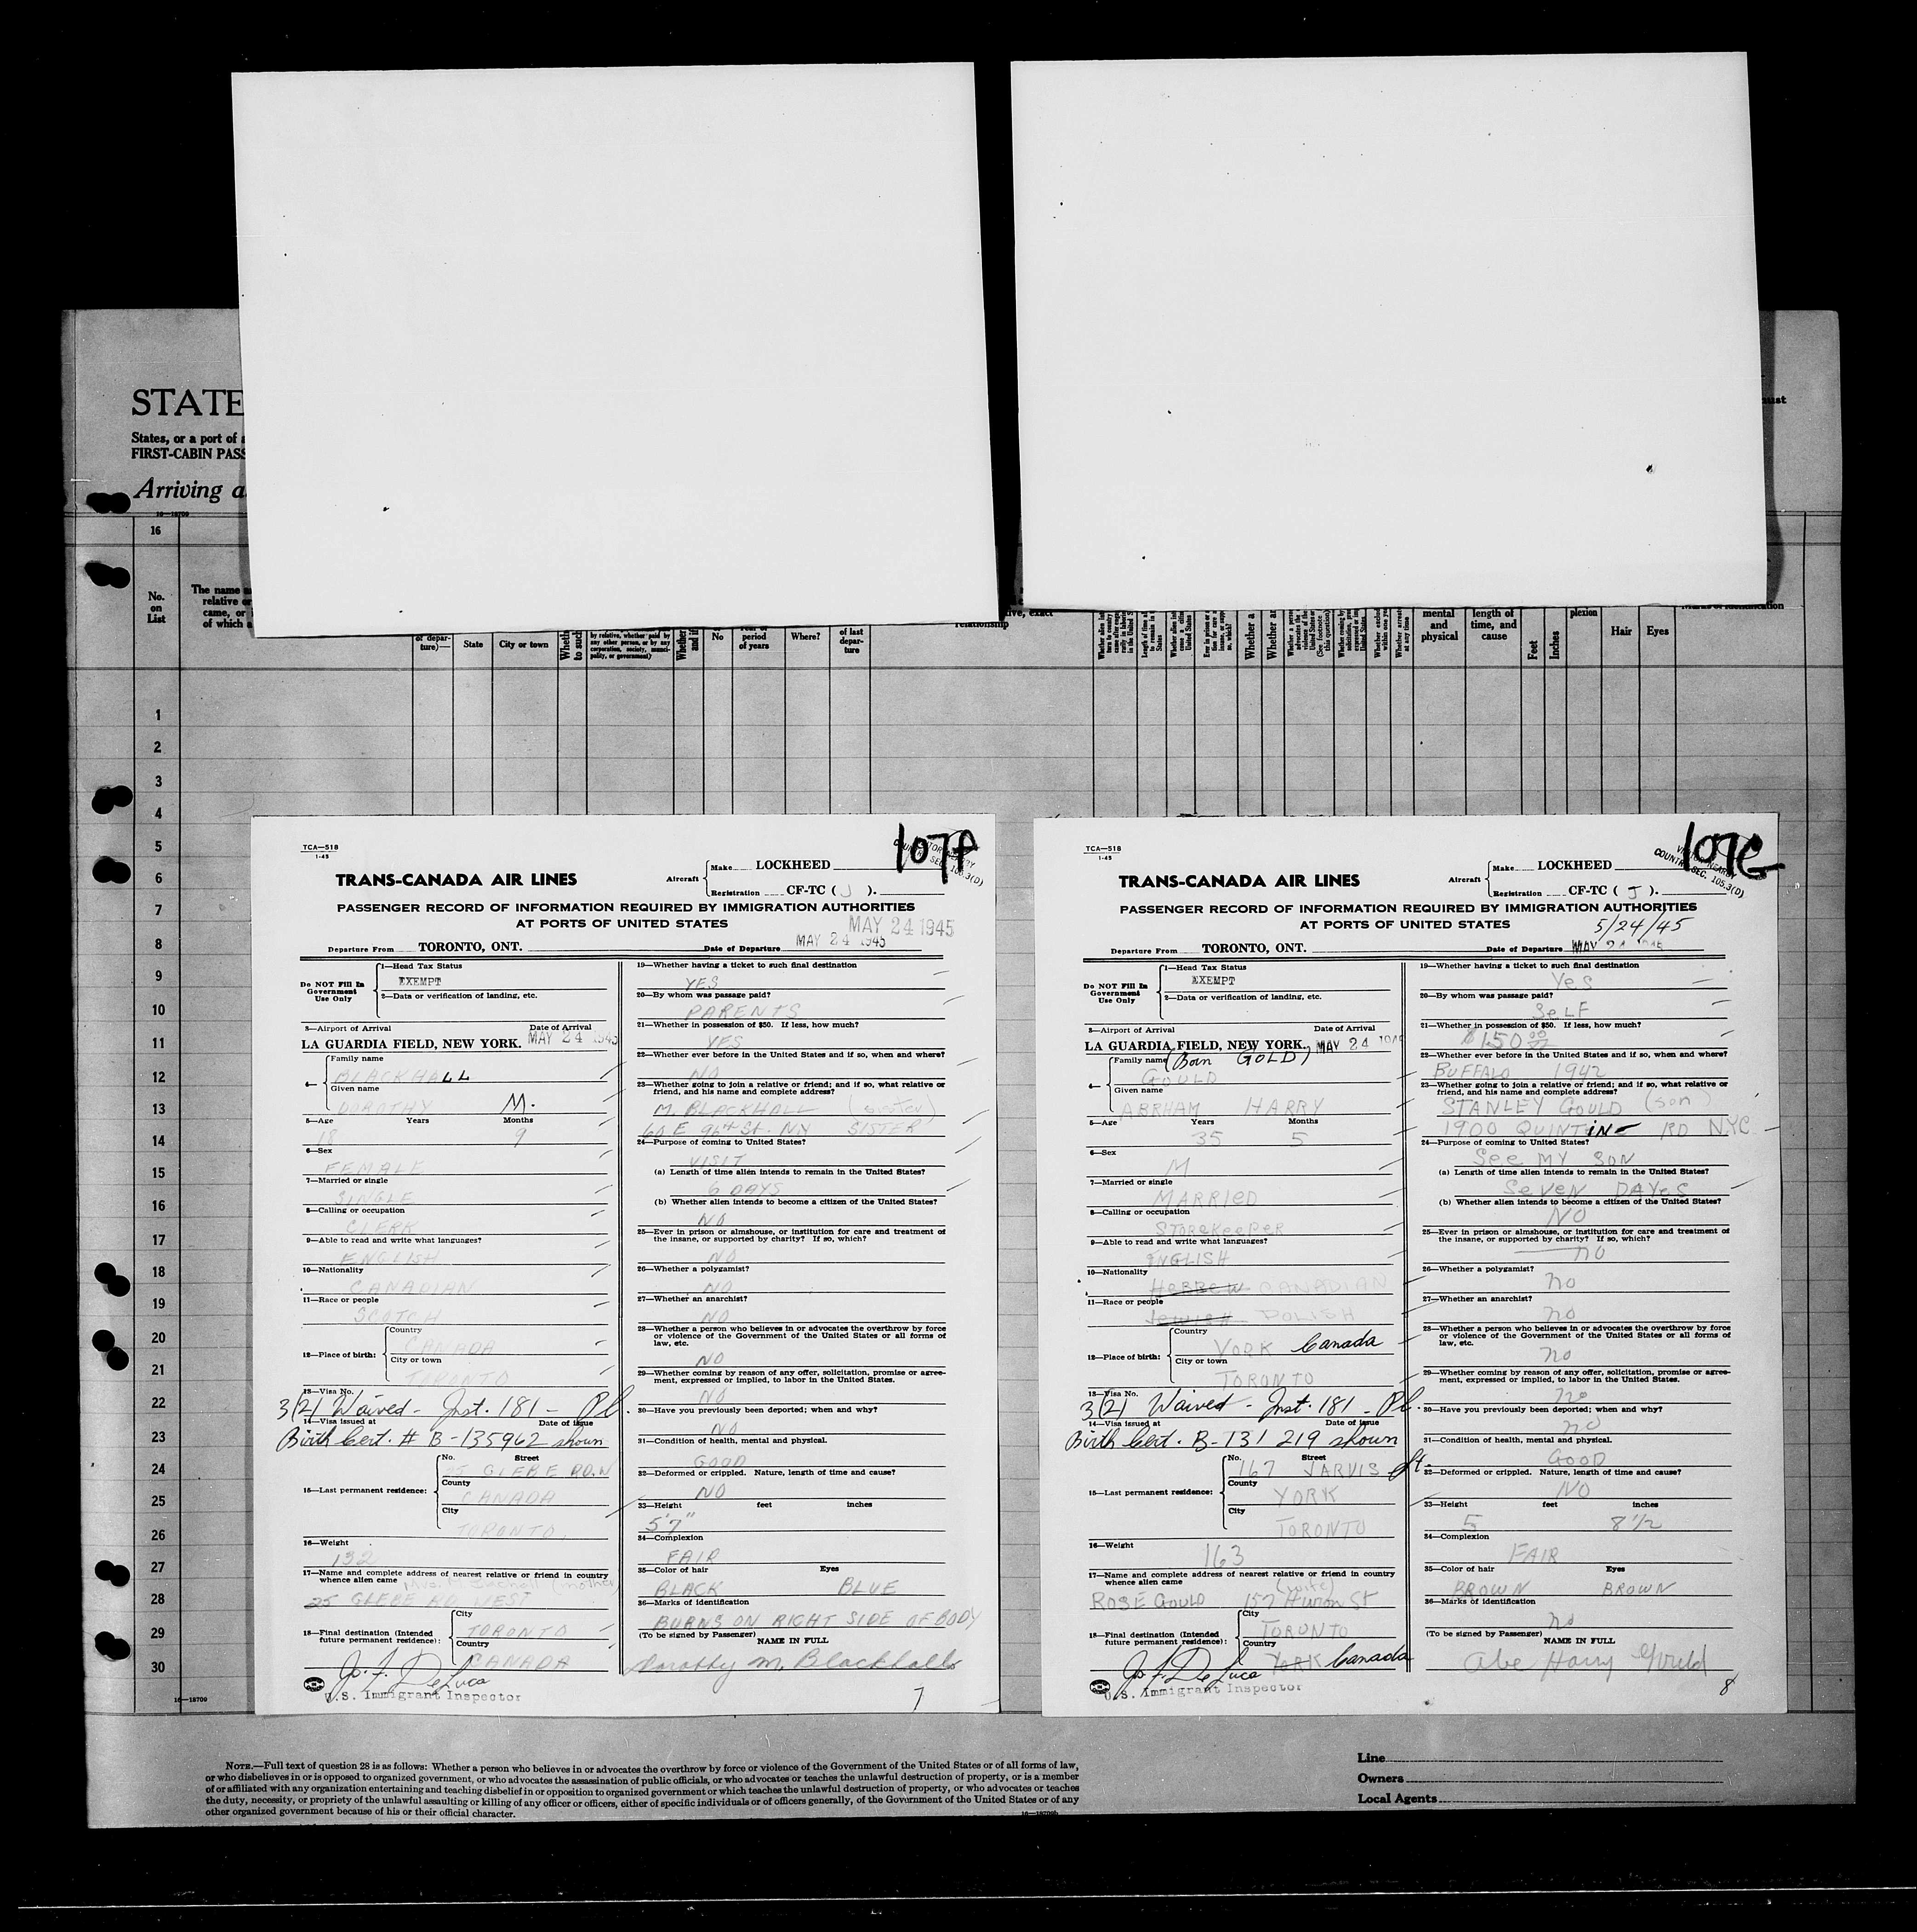 STATE
States, or a port of a
FIRST-CABIN PASS
Arriving a
must
16—18709
16
No.
on
List
The name a
relative or
came, or i
of which a
of depar-
ture)—
State
City or town
Wheth
to such
by relative, whether paid by
any other person, or by any
corporation, society, munici-
pality, or government)
Whether
and if
No
period
of years
Where?
of last
depar-
ture
relationship
Whether a
mental
and
physical
length of
time, and
cause
Feet
Inches
plexion
Hair
Eyes
Marks of identification
1
2
3
4
5
6
7
8
9
10
11
12
13
14
15
16
17
18
19
20
21
22
23
24
25
26
27
28
29
30
16—18709
TCA—518
1-45
107f
TRANS-CANADA AIR LINES
Aircraft
Make LOCKHEED
Registration CF-TC ( J ).
PASSENGER RECORD OF INFORMATION REQUIRED BY IMMIGRATION AUTHORITIES
AT PORTS OF UNITED STATES
MAY 24 1945
Departure From TORONTO, ONT. Date of Departure MAY 24 1945
Do NOT Fill In
Government
Use Only
1—Head Tax Status
EXEMPT
2—Data or verification of landing, etc.
3—Airport of Arrival Date of Arrival
LA GUARDIA FIELD, NEW YORK. MAY 24 1945
4— Family name
BLACKHALL
Given name
DOROTHY M.
5—Age Years Months
18 9
6—Sex
FEMALE
7—Married or single
SINGLE
8—Calling or occupation
CLERK
9—Able to read and write what languages?
ENGLISH
10—Nationality
CANADIAN
11—Race or people
SCOTCH
12—Place of birth: Country
CANADA
City or town
TORONTO
13—Visa No.
3(2) Waived - Inst. 181 - Pl.
14—Visa issued at Date of issue
Birth Cert. # B-135962 shown
15—Last permanent residence:
No. Street
25 GLEBE RD. W
County
CANADA
City
TORONTO.
16—Weight
132
17—Name and complete address of nearest relative or friend in country
whence alien came (mother)
25 GLEBE RD WEST
18—Final destination (Intended
future permanent residence):
City
TORONTO
Country
CANADA
Jo. F. DeLuca
U.S. Immigrant Inspector
19—Whether having a ticket to such final destination
YES
20—By whom was passage paid?
PARENTS
21—Whether in possession of $50. If less, how much?
YES
22—Whether ever before in the United States and if so, when and where?
NO
23—Whether going to join a relative or friend; and if so, what relative or
friend, and his name and complete address?
M. BLACKHALL (sister)
60 E 96th St. NY SISTER
24—Purpose of coming to United States?
VISIT
(a) Length of time alien intends to remain in the United States?
6 DAYS
(b) Whether alien intends to become a citizen of the United States?
NO
25—Ever in prison or almshouse, or institution for care and treatment of
the insane, or supported by charity? If so, which?
NO
26—Whether a polygamist?
NO
27—Whether an anarchist?
NO
28—Whether a person who believes in or advocates the overthrow by force
or violence of the Government of the United States or all forms of
law, etc.
NO
29—Whether coming by reason of any offer, solicitation, promise or agree-
ment, expressed or implied, to labor in the United States.
NO
30—Have you previously been deported; when and why?
NO
31—Condition of health, mental and physical.
GOOD
32—Deformed or crippled. Nature, length of time and cause?
NO
33—Height feet inches
5'7"
34—Complexion
FAIR
35—Color of hair Eyes
BLACK BLUE
36—Marks of identification
BURNS ON RIGHT SIDE OF BODY
(To be signed by Passenger) NAME IN FULL
Dorothy M. Blackhall
7
TCA—518
1-45
107G
VISITOR NEARBY
COUNTRY SEC. 105.3(D)
TRANS-CANADA AIR LINES
Aircraft
Make LOCKHEED
Registration CF-TC ( J ).
PASSENGER RECORD OF INFORMATION REQUIRED BY IMMIGRATION AUTHORITIES
AT PORTS OF UNITED STATES
5/24/45
Departure From TORONTO, ONT. Date of Departure MAY 24 1945
Do NOT Fill In
Government
Use Only
1—Head Tax Status
EXEMPT
2—Data or verification of landing, etc.
3—Airport of Arrival Date of Arrival
LA GUARDIA FIELD, NEW YORK. MAY 24 194
4— Family name (Born GOLD)
GOULD
Given name
ABRHAM HARRY
5—Age Years Months
35 5
6—Sex
M
7—Married or single
MARRIED
8—Calling or occupation
STOREKEEPER
9—Able to read and write what languages?
ENGLISH
10—Nationality
HEBREW CANADIAN
11—Race or people
JEWISH POLISH
12—Place of birth: Country
YORK Canada
City or town
TORONTO
13—Visa No.
3(2) Waived - Inst. 181 - Pl.
14—Visa issued at Date of issue
Birth Cert. B-131 219 shown
15—Last permanent residence:
No. Street
167 JARVIS St.
County
YORK
City
TORONTO
16—Weight
163
17—Name and complete address of nearest relative or friend in country
whence alien came (wife)
ROSE GOULD 157 Huron St
18—Final destination (Intended
future permanent residence):
City
TORONTO
Country
YORK Canada
Jo. F. DeLuca
U.S. Immigrant Inspector
19—Whether having a ticket to such final destination
Yes
20—By whom was passage paid?
SeLF
21—Whether in possession of $50. If less, how much?
$150 00
22—Whether ever before in the United States and if so, when and where?
BUFFALO 1942
23—Whether going to join a relative or friend; and if so, what relative or
friend, and his name and complete address?
STANLEY GOULD (son)
1900 QUINTINE RD NYC
24—Purpose of coming to United States?
See MY SON
(a) Length of time alien intends to remain in the United States?
SeVeN DAYeS
(b) Whether alien intends to become a citizen of the United States?
NO
25—Ever in prison or almshouse, or institution for care and treatment of
the insane, or supported by charity? If so, which?
no
26—Whether a polygamist?
no
27—Whether an anarchist?
no
28—Whether a person who believes in or advocates the overthrow by force
or violence of the Government of the United States or all forms of
law, etc.
no
29—Whether coming by reason of any offer, solicitation, promise or agree-
ment, expressed or implied, to labor in the United States.
no
30—Have you previously been deported; when and why?
no
31—Condition of health, mental and physical.
GOOD
32—Deformed or crippled. Nature, length of time and cause?
NO
33—Height feet inches
5 8 1/2
34—Complexion
FAIR
35—Color of hair Eyes
BROWN BROWN
36—Marks of identification
no
(To be signed by Passenger) NAME IN FULL
Abe Harry Gould
8
NOTE.—Full text of question 28 is as follows: Whether a person who believes in or advocates the overthrow by force or violence of the Government of the United States or of all forms of law,
or who disbelieves in or is opposed to organized government, or who advocates the assassination of public officials, or who advocates or teaches the unlawful destruction of property, or is a member
of or affiliated with any organization entertaining and teaching disbelief in or opposition to organized government or which teaches the unlawful destruction of property, or who advocates or teaches
the duty, necessity, or propriety of the unlawful assaulting or killing of any officer or officers, either of specific individuals or of officers generally, of the Government of the United States or of any
other organized government because of his or their official character.
Line
Owners
Local Agents